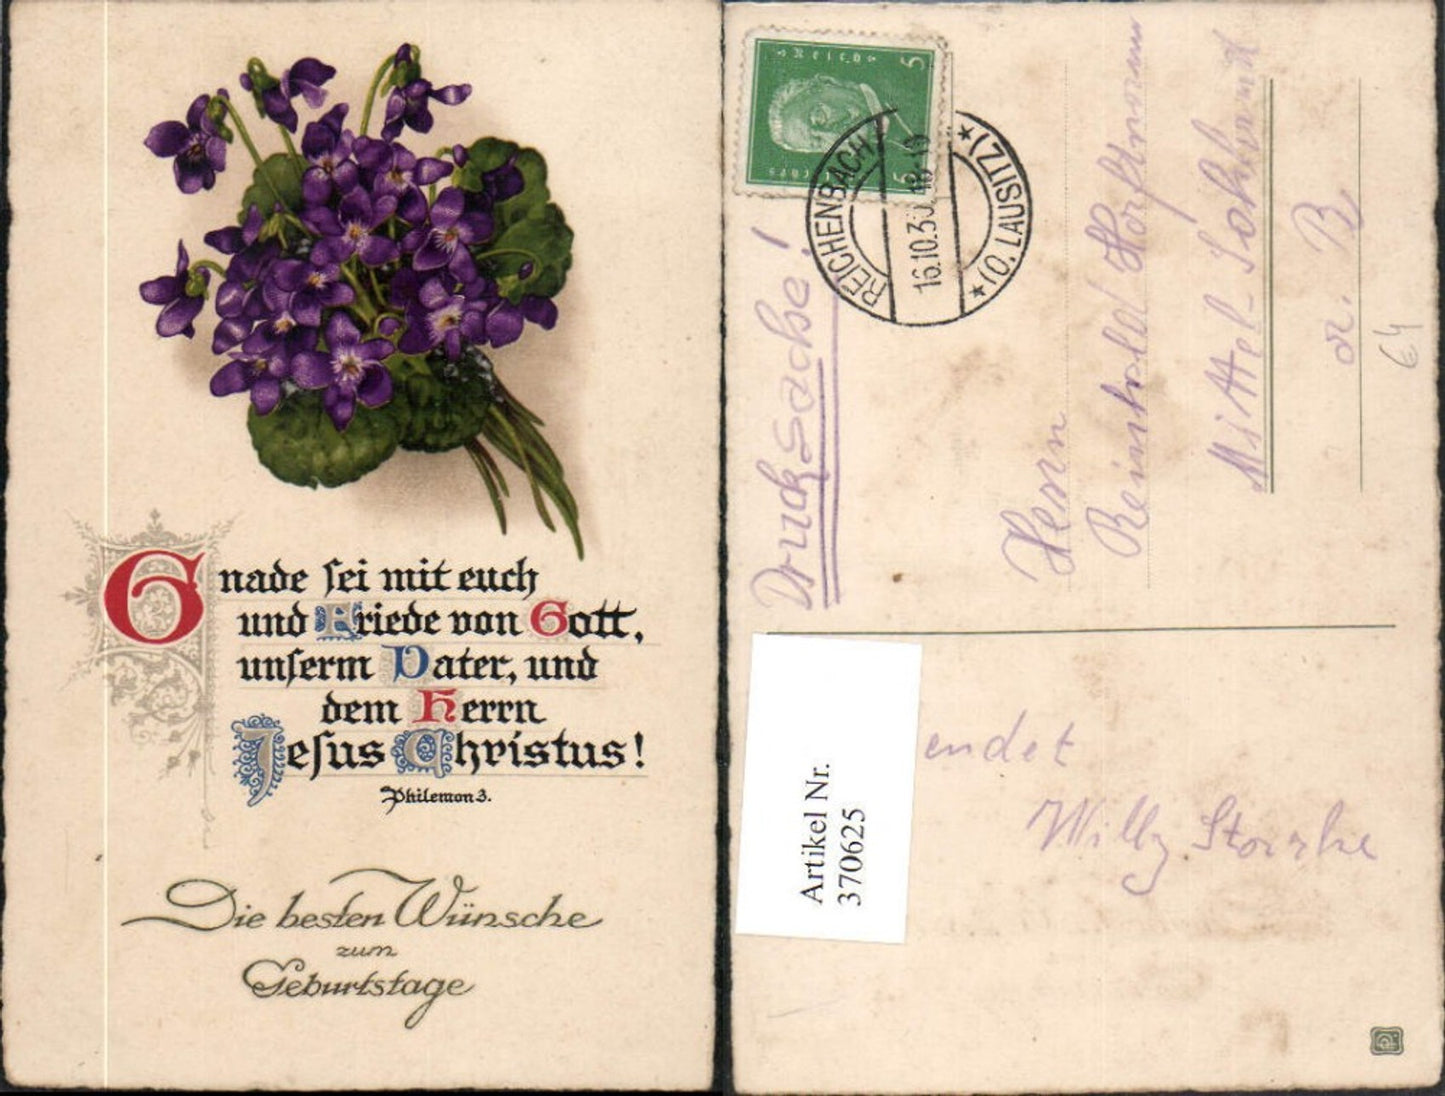 Gnade sei mit euch
und Friede von Gott,
unserm Vater, und
dem Herrn
Jesus Christus!
Philemon 3.
Die besten Wünsche
zum
Geburtstage
5
5
REICHENBACH
16.10.30
(O. LAUSITZ)
Drucksache!
Herrn
Reinhold Hoffmann
Mittel-Sohland
a. R.
64
Artikel Nr.
370625
endet
Willy